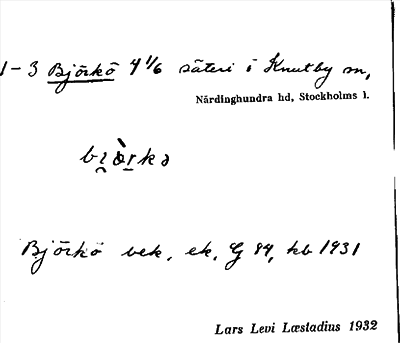 1-3 Björkö 4 1/6 säteri i Knutby sn,
Närdinghundra hd, Stockholms l.
Björkö bek. ek. G 84, kb 1931
Lars Levi Læstadius 1932